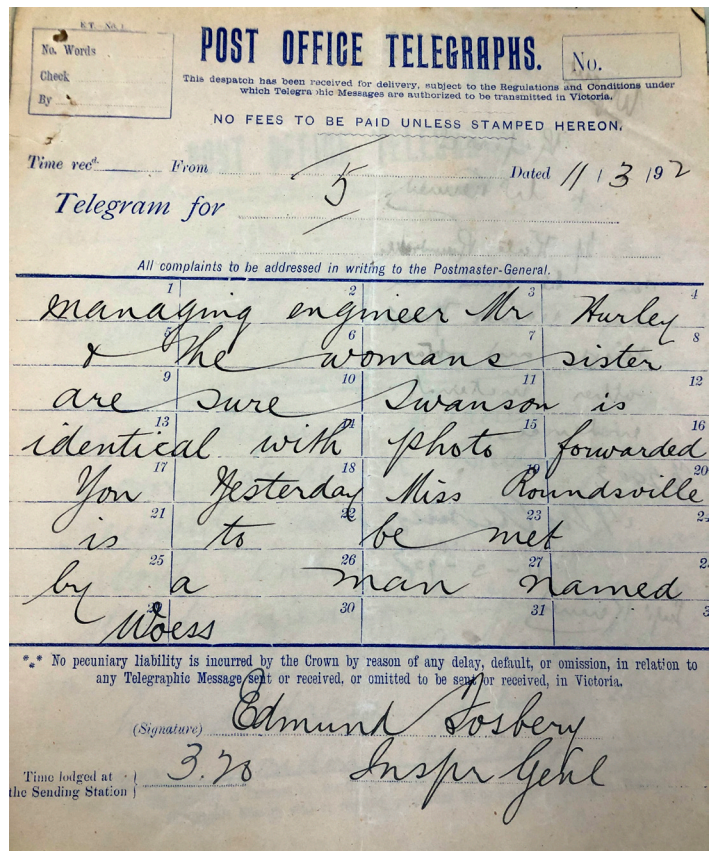 E.T. No. 1.
No. Words
Check
By
POST OFFICE TELEGRAPHS.
No.
This despatch has been received for delivery, subject to the Regulations and Conditions under
which Telegraphic Messages are authorized to be transmitted in Victoria.
NO FEES TO BE PAID UNLESS STAMPED HEREON.
Time recd. From 5 Dated 11/3/92
Telegram for
All complaints to be addressed in writing to the Postmaster-General.
1 2 3 4
managing engineer Mr Hurley
5 6 7 8
& the womans sister
9 10 11 12
are sure Swanson is
13 14 15 16
identical with photo forwarded
17 18 19 20
You Yesterday Miss Roundsville
21 22 23 2
is to be met
25 26 27 2
by a man named
29 30 31 3
Woess
*** No pecuniary liability is incurred by the Crown by reason of any delay, default, or omission, in relation to
any Telegraphic Message sent or received, or omitted to be sent or received, in Victoria.
(Signature) Edmund Fosbery
Time lodged at
the Sending Station } 3.20 Inspr Genl